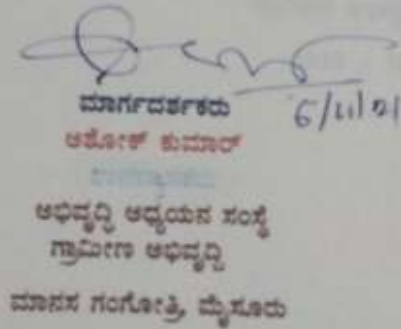 6/11/21
ಮಾರ್ಗದರ್ಶಕರು
ಅಶೋಕ್ ಕುಮಾರ್
ಅಭಿವೃದ್ಧಿ ಅಧ್ಯಯನ ಸಂಸ್ಥೆ
ಗ್ರಾಮೀಣ ಅಭಿವೃದ್ಧಿ
ಮಾನಸ ಗಂಗೋತ್ರಿ, ಮೈಸೂರು